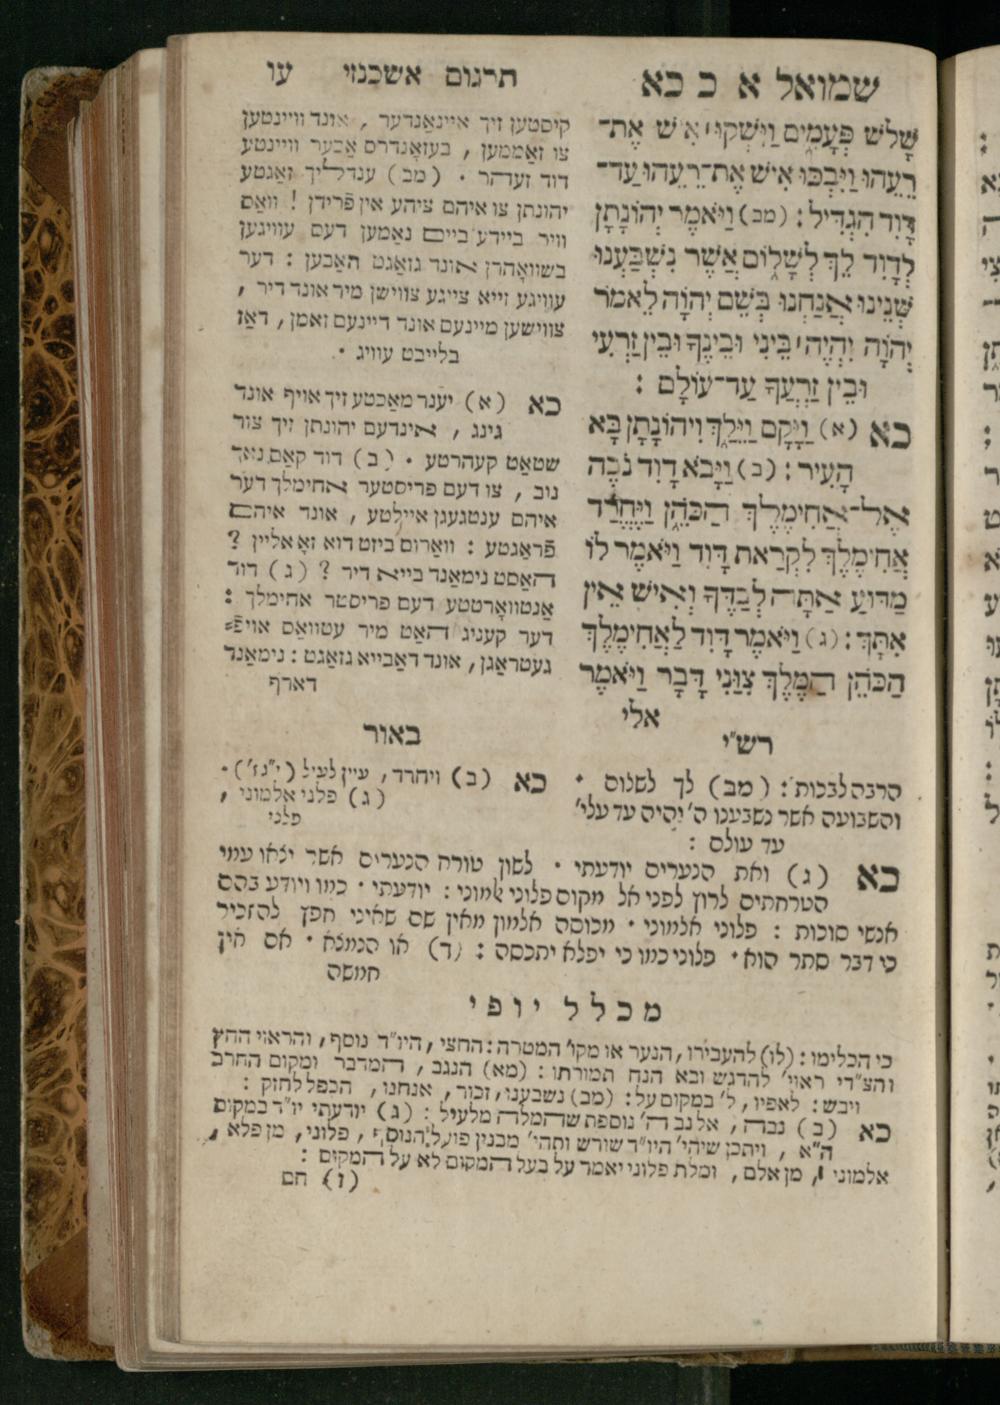 שמואל א כ כא
תרגום אשכנזי עו
שָׁלֹשׁ פְּעָמִים וַיִּשְּׁקוּ אִישׁ אֶת־
רֵעֵהוּ וַיִּבְכּוּ אִישׁ אֶת־רֵעֵהוּ עַד־
דָּוִד הִגְדִּיל: (מב) וַיֹּאמֶר יְהוֹנָתָן
לְדָוִד לֵךְ לְשָׁלוֹם אֲשֶׁר נִשְׁבַּעְנוּ
שְׁנֵינוּ אֲנַחְנוּ בְּשֵׁם יְהוָֹה לֵאמֹר
יְהוָֹה יִהְיֶה בֵּינִי וּבֵינֶךָ וּבֵין זַרְעִי
וּבֵין זַרְעֲךָ עַד־עוֹלָם :
כא (א) וַיָּקָם וַיֵּלַךְ וִיהוֹנָתָן בָּא
הָעִיר: (ב) וַיָּבֹא דָוִד נֹבֶה
אֶל־אֲחִימֶלֶךְ הַכֹּהֵן וַיֶּחֱרַד
אֲחִימֶלֶךְ לִקְרַאת דָּוִד וַיֹּאמֶר לוֹ
מַדּוּעַ אַתָּה לְבַדֶּךָ וְאִישׁ אֵין
אִתָּךְ: (ג) וַיֹּאמֶר דָּוִד לַאֲחִימֶלֶךְ
הַכֹּהֵן הַמֶּלֶךְ צִוַּנִי דָּבָר וַיֹּאמֶר
אלי
קיסטען זיך איינאַנדער , אונד וויינטען
צו זאַממען , בעזאָנדרס אַבער וויינטע
דוד זעהר . (מב) ענדליך זאַגטע
יהונתן צו איהם ציהע אין פֿרידן ! וואַס
וויר ביידע ביים נאַמען דעם עוויגען
בשוואָהרן אונד גזאַגט האַבען : דער
עוויגע זייא צייגע צווישן מיר אונד דיר ,
צווישען מיינעם אונד דיינעם זאמן , דאַז
בלייבט עוויג .
כא (א) יענר מאַכטע זיך אויף אונד
גינג , אינדעם יהונתן זיך צור
שטאַט קעהרטע . (ב) דוד קאַם נאך
נוב , צו דעם פריסטער אחימלך דער
איהם ענטגעגן איילטע , אונד איהם
פֿראַגטע : וואַרום ביזט דוא זאָ אליין ?
האַסט נימאַנד בייא דיר ? (ג) דוד
אַנטוואָרטטע דעם פריסטר אחימלך :
דער קעניג האַט מיר עטוואַס אויפֿ=
געטראַגן , אונד דאַבייא גזאַגט : נימאַנד
דארף
רש"י
הרבה לבכות : (מב) לך לשלום .
והשבועה אשר נשבענו ה' יהיה עד עלי'
עד עולם :
באור
כא (ב) ויחרד , עיין לעיל (י"ג ז') .
(ג) פלני אלמוני ,
פלני
כא (ג) ואת הנערים יודעתי . לשון טורח הנערים אשר יצאו עמי
הטרחתים לרוץ לפני אל מקום פלוני אלמוני : יודעתי . כמו ויודע בהם
אנשי סוכות : פלוני אלמוני . מכוסה אלמון מאין שם שאיני חפץ להזכיר
כי דבר סתר הוא . פלוני כמו כי יפלא יתכסה : (ד) או הנמצא . אם אין
חמשה
מכלל יופי
כי הכלימו : (לו) להעבירו , הנער או מקו' המטרה : החצי , היו"ד נוסף , והראוי החץ
והצ"די ראוי' להדגש ובא הנח תמורתו : (מא) הנגב , המדבר ומקום החרב
ויבש : לאפיו , ל' במקום על : (מב) נשבענו , זכור , אנחנו , הכפל לחזק :
כא (ב) נבה , אל נב ה' נוספת שהמלה מלעיל : (ג) יודעתי יו"ד במקום
ה"א , ויתכן שיהי' היו"ד שורש ותהי' מבנין פועל הנוסף , פלוני , מן פלא ,
אלמוני , מן אלם , ומלת פלוני יאמר על בעל המקום לא על המקום :
(ז) חם